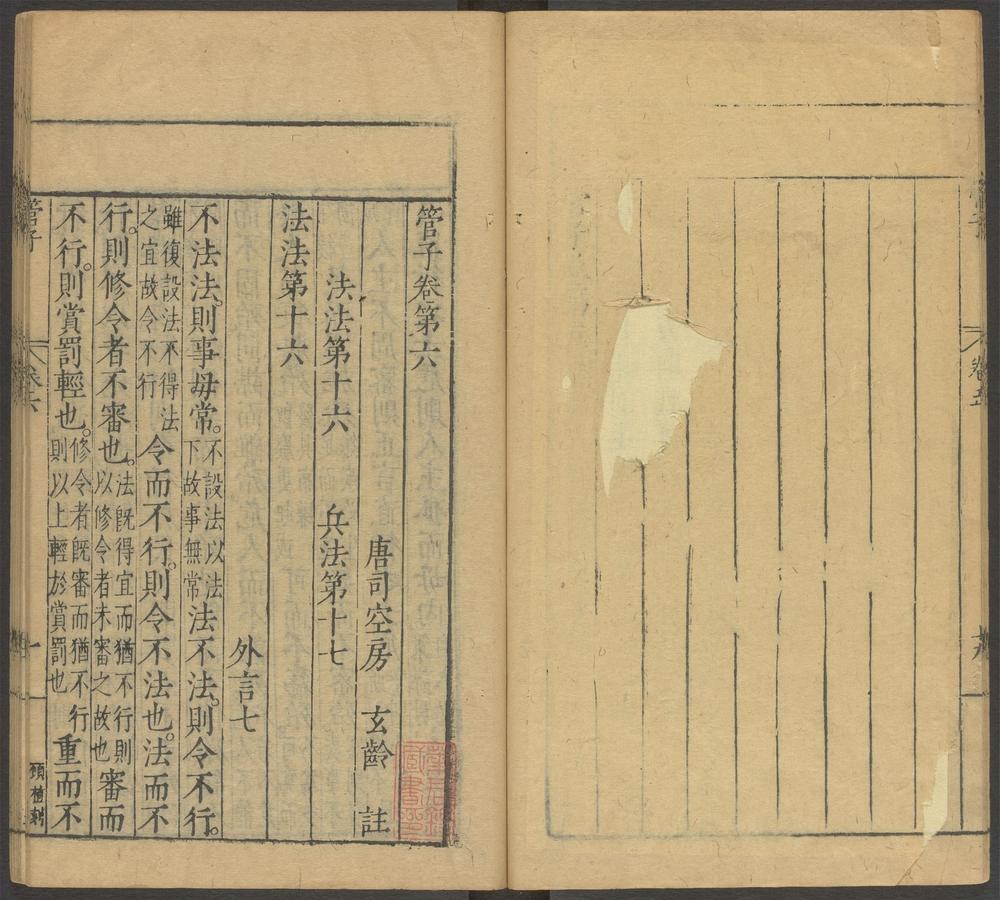 管子
卷五
管子卷第六
唐司空房 玄齡 註
法法第十六 兵法第十七
法法第十六
外言七
不法法。則事毋常。不設法以法下故事無常法不法。則令不行。
雖復設法不得法之宜故令不行令而不行。則令不法也。法而不
行。則修令者不審也。法既得宜而猶不行則以修令者未審之故也審而
不行。則賞罰輕也。修令者既審而猶不行則以上輕於賞罰也重而不
管子
卷六
一